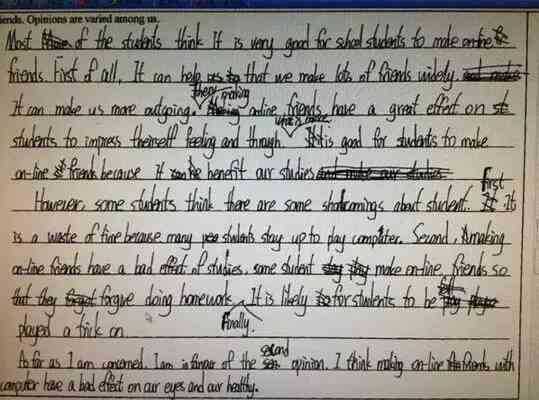 iends. Opinions are varied among us.
Most of the students think It is very good for school students to make on-line
friends. First of all, It can help that we make lots of friends widely.
It can make us more outgoing. then making on-line friends have a great effect on
students to impress theirself feeling and through what's more It is good for students to make
on-line friends because It benefit our studies
However, some students think there are some shortcomings about student. First It
is a waste of time because many students stay up to play computer. Second, making
on-line friends have a bad effect of studies, some student make on-line, friends so
that they forgive doing homework. It is likely for students to be
played a trick on Finally.
As far as I am concerned. I am in favour of the second opinion. I think making on-line friends with
computer have a bad effect on our eyes and our healthy.